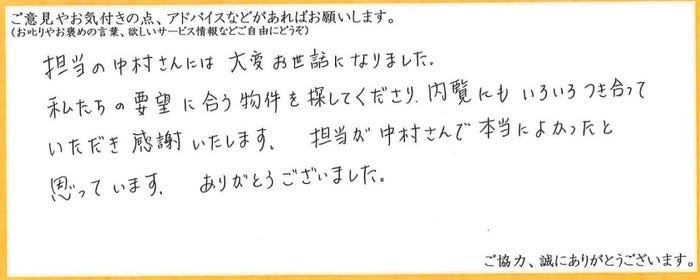 ご意見やお気付きの点、アドバイスなどがあればお願いします。
(お叱りやお褒めの言葉、欲しいサービス情報などご自由にどうぞ)
担当の中村さんには大変お世話になりました。
私たちの要望に合う物件を探してくださり、内覧にもいろいろつき合って
いただき感謝いたします。 担当が中村さんで本当によかったと
思っています。 ありがとうございました。
ご協力、誠にありがとうございます。